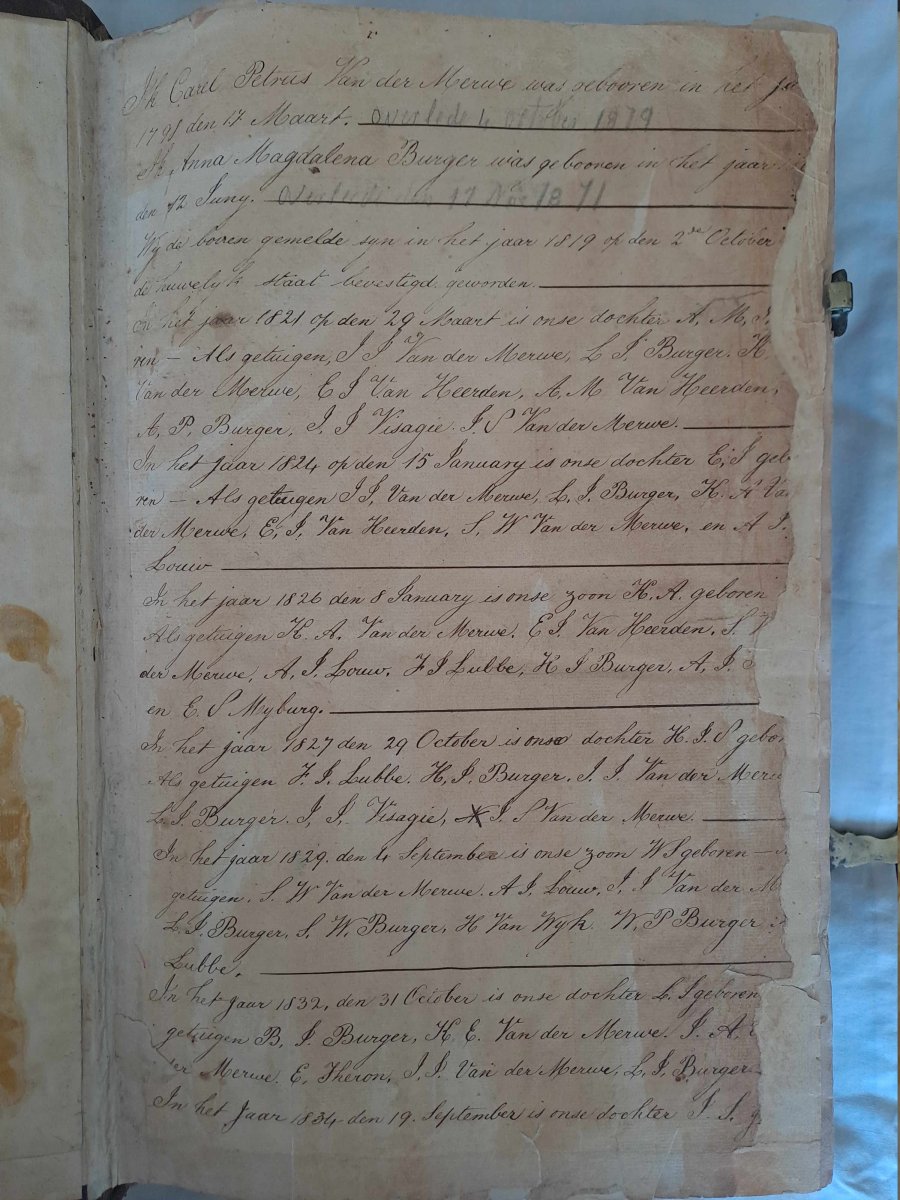 Ik Carel Petrus Van der Merwe was gebooren in het
den 17 Maart. overlede 4 october 1879
Ik, Anna Magdalena Burger was gebooren in het jaar
den 12 Juny. 17 1871
Wy de boven gemelde syn in het jaar 1819 op den 2de October
de huwelyk staat bevestigd geworden.
In het jaar 1821 op den 29 Maart is onse dochter A, M, J.
ren — Als getuigen, J J Van der Merwe, L J. Burger. H
Van der Merwe, E J Van Heerden, A, M Van Heerden,
A, P, Burger, J, J Visagie. J. S Van der Merwe.
In het jaar 1824 op den 15 January is onse dochter E, J geb
ren — Als getuigen J J, Van der Merwe, L, J. Burger, H. A Va
der Merwe, E, J, Van Heerden, S, W Van der Merwe, en A J.
Louw
In het jaar 1826 den 8 January is onse zoon H. A. geboren
Als getuigen H. A. Van der Merwe. E J. Van Heerden. S.
der Merwe, A, J, Louw. F J Lubbe, H J Burger, A, J.
en E. S Myburg.
In het jaar 1827 den 29 October is onse dochter H. J. S gebor
Als getuigen F. J. Lubbe. H, J. Burger. J. J. Van der Merw
L. J. Burger. J, J. Visagie, J. S Van der Merwe.
In het jaar 1829. den 4 September is onse zoon W S geboren —
getuigen. S. W Van der Merwe. A J, Louw, J, J Van der M
L. J. Burger, S. W, Burger, H Van Wyk. W, P Burger
Lubbe,
In het jaar 1832, den 31 October is onse dochter L. J geboren
getuigen B, J. Burger, H E. Van der Merwe. J. A,
Merwe. E, Theron, J, J. Van der Merwe, L. J, Burger
In het Jaar 1834 den 19. September is onse dochter J. J.